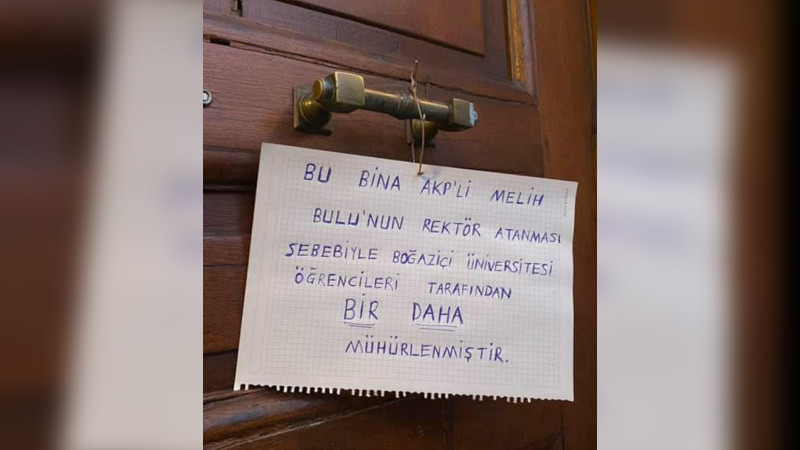 BU BINA AKP'LI MELIH
BULU'NUN REKTÖR ATANMASI
SEBEBIYLE BOĞAZIÇI ÜNIVERSITESI
ÖĞRENCILERI TARAFINDAN
BİR DAHA
MÜHÜRLENMIŞTIR.